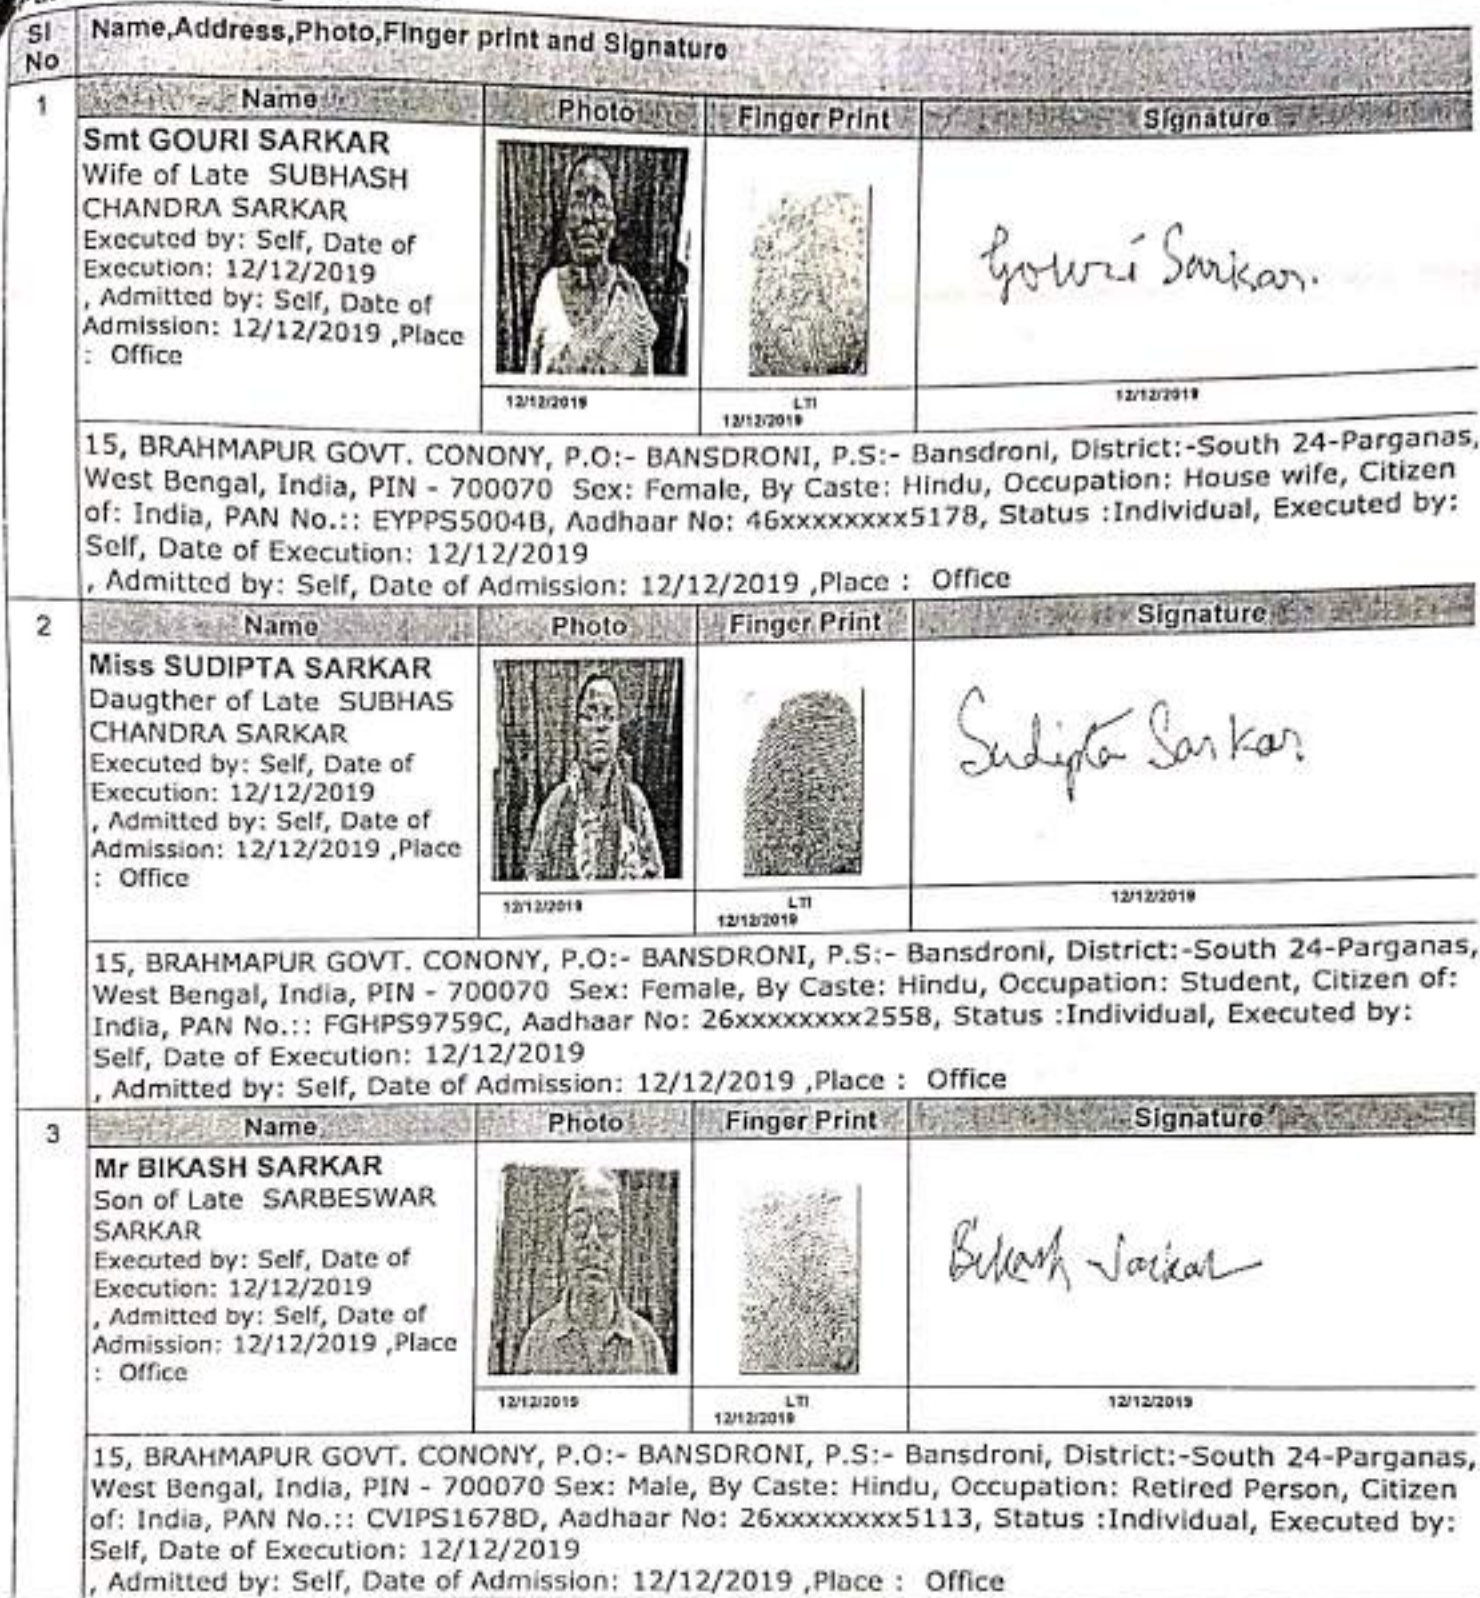 Sl
No
Name,Address,Photo,Finger print and Signature
1
Name
Photo
Finger Print
Signature
Smt GOURI SARKAR
Wife of Late SUBHASH
CHANDRA SARKAR
Executed by: Self, Date of
Execution: 12/12/2019
, Admitted by: Self, Date of
Admission: 12/12/2019 ,Place
: Office
Gouri Sarkar.
12/12/2019
LTI
12/12/2019
12/12/2019
15, BRAHMAPUR GOVT. CONONY, P.O:- BANSDRONI, P.S:- Bansdroni, District:-South 24-Parganas,
West Bengal, India, PIN - 700070 Sex: Female, By Caste: Hindu, Occupation: House wife, Citizen
of: India, PAN No.:: EYPPS5004B, Aadhaar No: 46xxxxxxxx5178, Status :Individual, Executed by:
Self, Date of Execution: 12/12/2019
, Admitted by: Self, Date of Admission: 12/12/2019 ,Place : Office
2
Name
Photo
Finger Print
Signature
Miss SUDIPTA SARKAR
Daugther of Late SUBHAS
CHANDRA SARKAR
Executed by: Self, Date of
Execution: 12/12/2019
, Admitted by: Self, Date of
Admission: 12/12/2019 ,Place
: Office
Sudipta Sarkar.
12/12/2019
LTI
12/12/2019
12/12/2019
15, BRAHMAPUR GOVT. CONONY, P.O:- BANSDRONI, P.S:- Bansdroni, District:-South 24-Parganas,
West Bengal, India, PIN - 700070 Sex: Female, By Caste: Hindu, Occupation: Student, Citizen of:
India, PAN No.:: FGHPS9759C, Aadhaar No: 26xxxxxxxx2558, Status :Individual, Executed by:
Self, Date of Execution: 12/12/2019
, Admitted by: Self, Date of Admission: 12/12/2019 ,Place : Office
3
Name
Photo
Finger Print
Signature
Mr BIKASH SARKAR
Son of Late SARBESWAR
SARKAR
Executed by: Self, Date of
Execution: 12/12/2019
, Admitted by: Self, Date of
Admission: 12/12/2019 ,Place
: Office
Bikash Sarkar
12/12/2019
LTI
12/12/2019
12/12/2019
15, BRAHMAPUR GOVT. CONONY, P.O:- BANSDRONI, P.S:- Bansdroni, District:-South 24-Parganas,
West Bengal, India, PIN - 700070 Sex: Male, By Caste: Hindu, Occupation: Retired Person, Citizen
of: India, PAN No.:: CVIPS1678D, Aadhaar No: 26xxxxxxxx5113, Status :Individual, Executed by:
Self, Date of Execution: 12/12/2019
, Admitted by: Self, Date of Admission: 12/12/2019 ,Place : Office